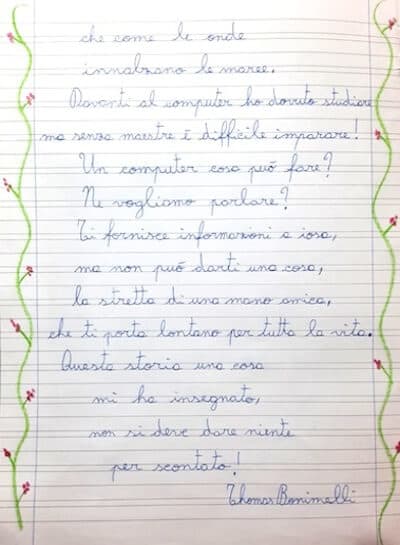 che come le onde
innalzano le maree.
Davanti al computer ho dovuto studiare
ma senza maestre è difficile imparare!
Un computer cosa può fare?
Ne vogliamo parlare?
Ti fornisce informazioni a iosa,
ma non può darti una cosa,
la stretta di una mano amica,
che ti porta lontano per tutta la vita.
Questa storia una cosa
mi ha insegnato,
non si deve dare niente
per scontato!
Thomas Bonimelli